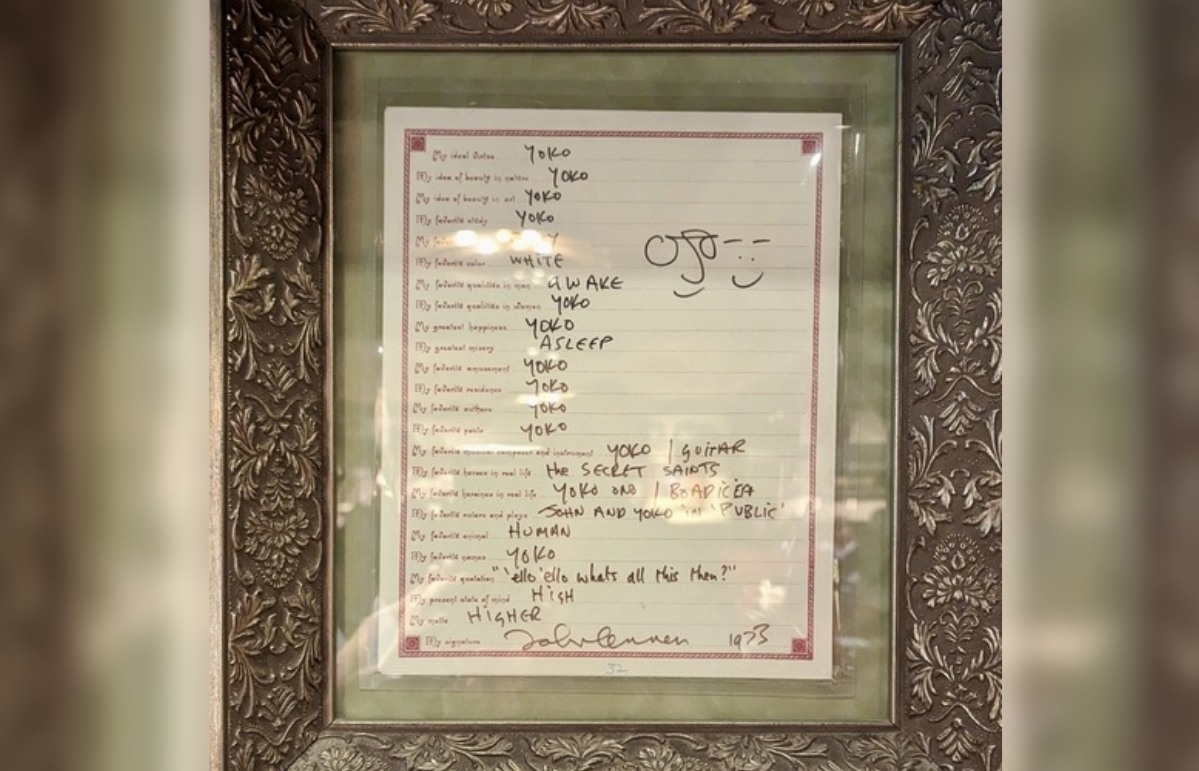 My ideal virtue YOKO
My idea of beauty in nature YOKO
My idea of beauty in art YOKO
My favorite study YOKO
My
My favorite color WHITE
My favorite qualities in men AWAKE
My favorite qualities in women YOKO
My greatest happiness YOKO
My greatest misery ASLEEP
My favorite amusement YOKO
My favorite residence YOKO
My favorite authors YOKO
My favorite poets YOKO
My favorite musical composer and instrument YOKO / GUITAR
My favorite heroes in real life the SECRET SAINTS
My favorite heroines in real life YOKO ONO / BOADICEA
My favorite actors and plays JOHN AND YOKO IN 'PUBLIC'
My favorite animal HUMAN
My favorite names YOKO
My favorite quotation "'ello 'ello whats all this then?"
My present state of mind HIGH
My motto HIGHER
My signature John Lennon 1973
32